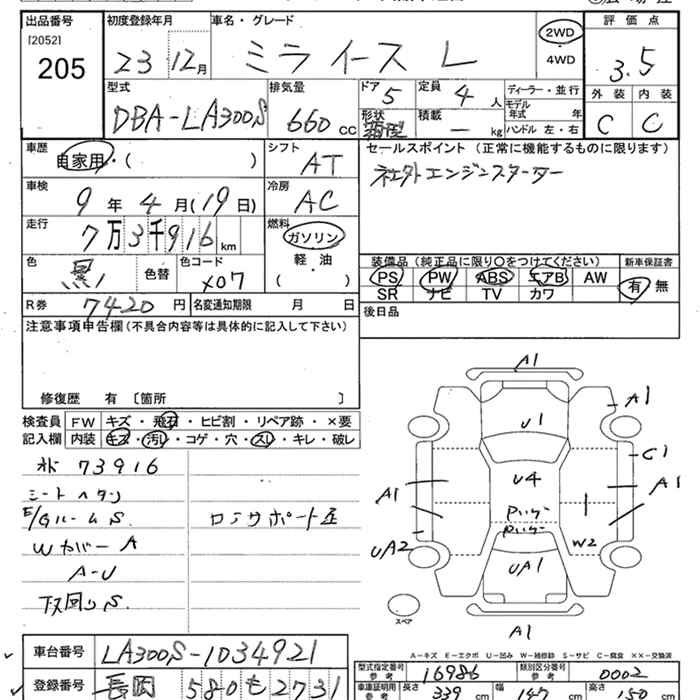 出品番号 初度登録年月 車名・グレード 2WD 評価点
[2052] 205 23 12月 ミライース L 4WD 3.5
型式 排気量 ドア 定員 ディーラー・並行 外装 内装
DBA-LA300S 660cc 5 4人 モデル年式 年 C C
形状 積載 — kg ハンドル 左・右
車歴 シフト セールスポイント (正常に機能するものに限ります)
自家用・( ) AT 社外エンジンスターター
車検 冷房
9年 4月(19日) AC
走行 燃料
7万3千916km ガソリン
軽・油
( )
色 色替 色コード 装備品(純正品に限り〇をつけてください) 新車保証書
黒 X07 PS PW ABS エアB AW 有 無
SR ナビ TV カワ
R券 7420円 名変通知期限 月 日 後日品
注意事項申告欄(不具合内容等は具体的に記入して下さい)
修復歴 有 〔箇所 〕
検査員 FW キズ・飛石・ヒビ割・リペア跡・×要
記入欄 内装 キズ・汚レ・コゲ・穴・スレ・キレ・破レ
73916
シートヘタリ
E/GルームS. コアサポート
WカバーA
A-U
下回りS.
A1
A1
U1
C1
U4
A1 A1
UA2 W2
UA1
スペア
A1
A-キズ E-エクボ U-凹み W-補修跡 S-サビ C-腐食 ××-交換済
車台番号 LA300S-1034921
型式指定番号 参考 16986 類別区分番号 参考 0002
登録番号 長岡 580 も 2731
車庫証明用 参考 長さ 339cm 幅 147cm 高さ 150cm